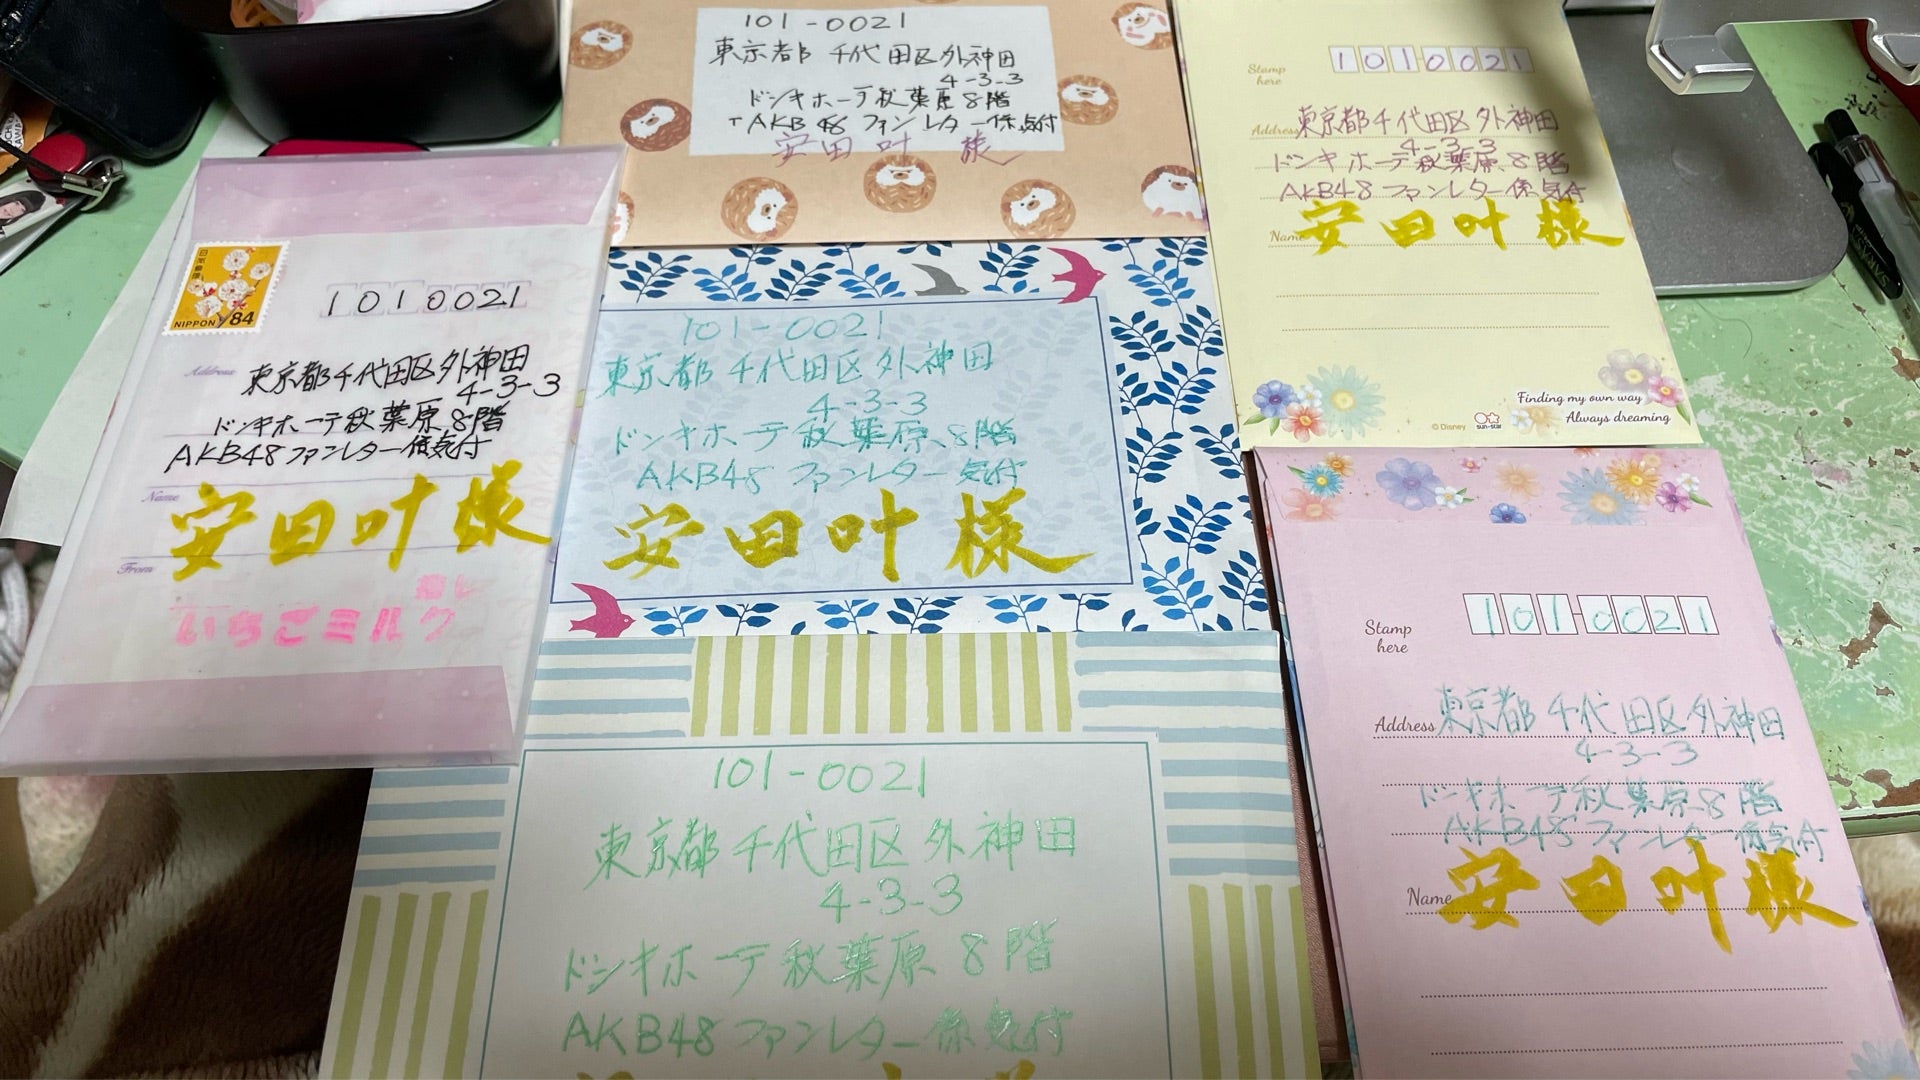 日本郵便
NIPPON 84
1010021
Address
東京都千代田区外神田
4-3-3
ドンキホーテ秋葉原8階
AKB48ファンレター係気付
Name
安田叶様
From
推し
いちごミルク
101-0021
東京都千代田区外神田
4-3-3
ドンキホーテ秋葉原8階
AKB48ファンレター係気付
安田叶様
101-0021
東京都千代田区外神田
4-3-3
ドンキホーテ秋葉原8階
AKB48ファンレター気付
安田叶様
101-0021
東京都千代田区外神田
4-3-3
ドンキホーテ秋葉原8階
AKB48ファンレター係気付
Stamp
here
1010021
Address
東京都千代田区外神田
4-3-3
ドンキホーテ秋葉原8階
AKB48ファンレター係気付
Name
安田叶様
Finding my own way
Always dreaming
© Disney
sun-star
Stamp
here
101-0021
Address
東京都千代田区外神田
4-3-3
ドンキホーテ秋葉原8階
AKB48ファンレター係気付
Name
安田叶様